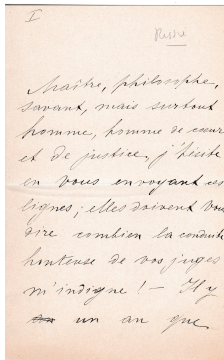 I
Maître, philosophe,
savant, mais surtout
homme, homme de cœur
et de justice, j'hésite
en vous envoyant ces
lignes; elles doivent vous
dire combien la conduite
honteuse de vos juges
m'indigne! — Il y
un an que